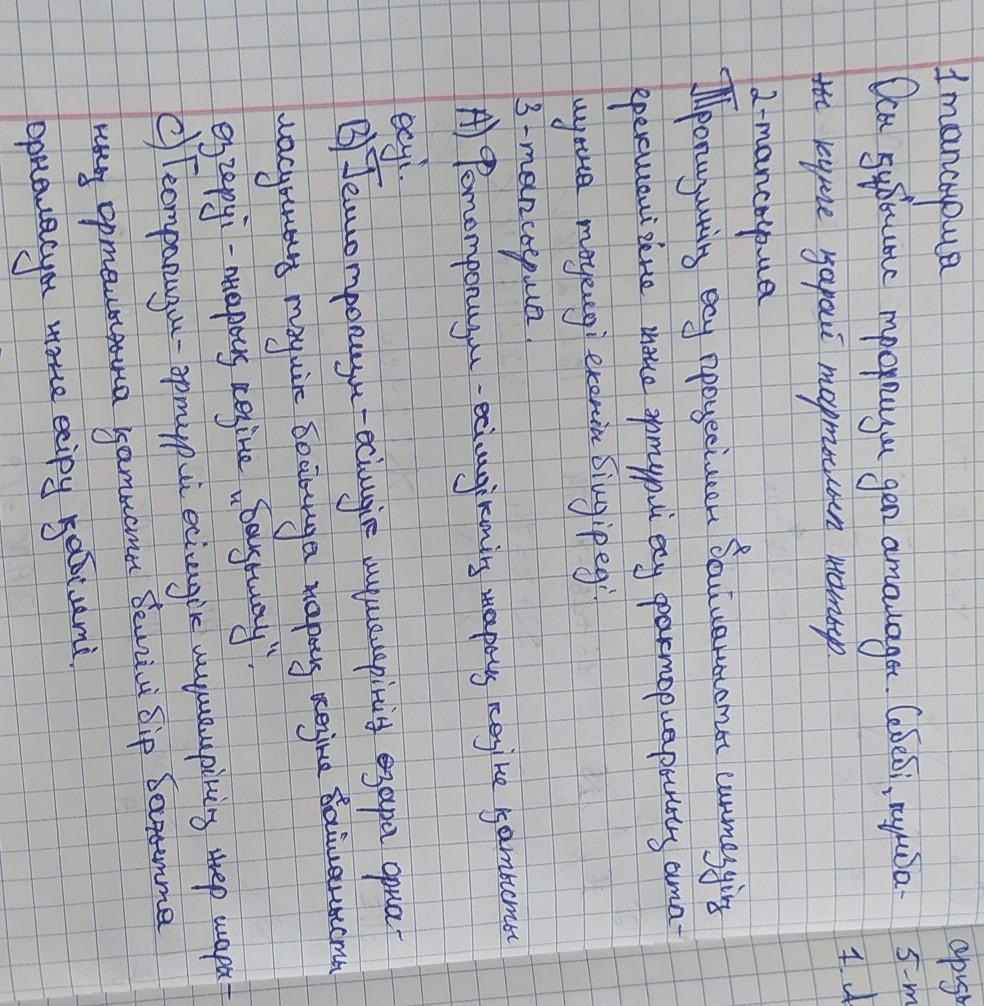 1тапсырма
Осы құбылыс тропизм деп аталады. Себебі, күнба-
ғы күнге қарай тартылып жатыр.
2-тапсырма
Тропизмнің өсу процесімен байланысты синтездің
ерекшелігіне және әртүрлі өсу факторларының ста-
луына тәуелді екенін білдіреді.
3-тапсырма.
А) Фототропизм - өсімдіктің жарық көзіне қатысты
өсуі.
В) Гелиотропизм - өсімдік мүшелерінің өзара орна-
ласуының тәулік бойында жарық көзіне байланысты
өзгеруі - жарық көзіне "бақылау".
С) Геотропизм - әртүрлі өсімдік мүшелерінің жер шары-
ның орталығына қатысты белгілі бір бағытта
орналасуы және өсіру қабілеті.
5-т
1.А